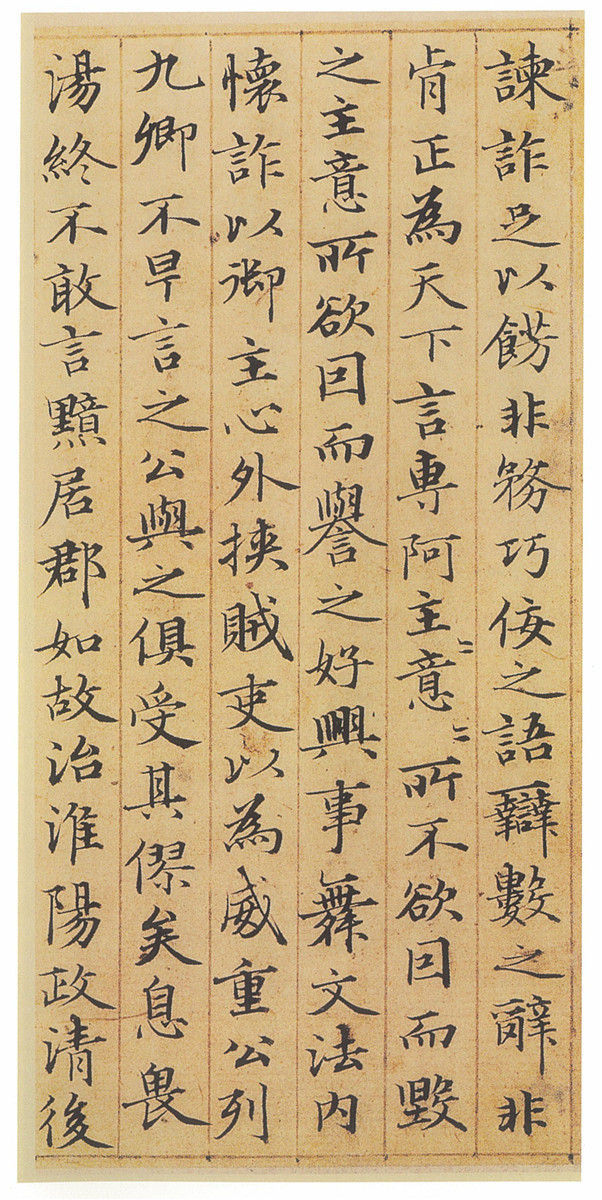 諫詐足以餝非務巧佞之語辯數之辭非
肯正為天下言専阿主〻意〻所不欲因而毀
之主意所欲因而譽之好興事舞文法内
懷詐以御主心外挟賊吏以為威重公列
九卿不早言之公與之俱受其僇矣息畏
湯終不敢言黯居郡如故治淮陽政清後